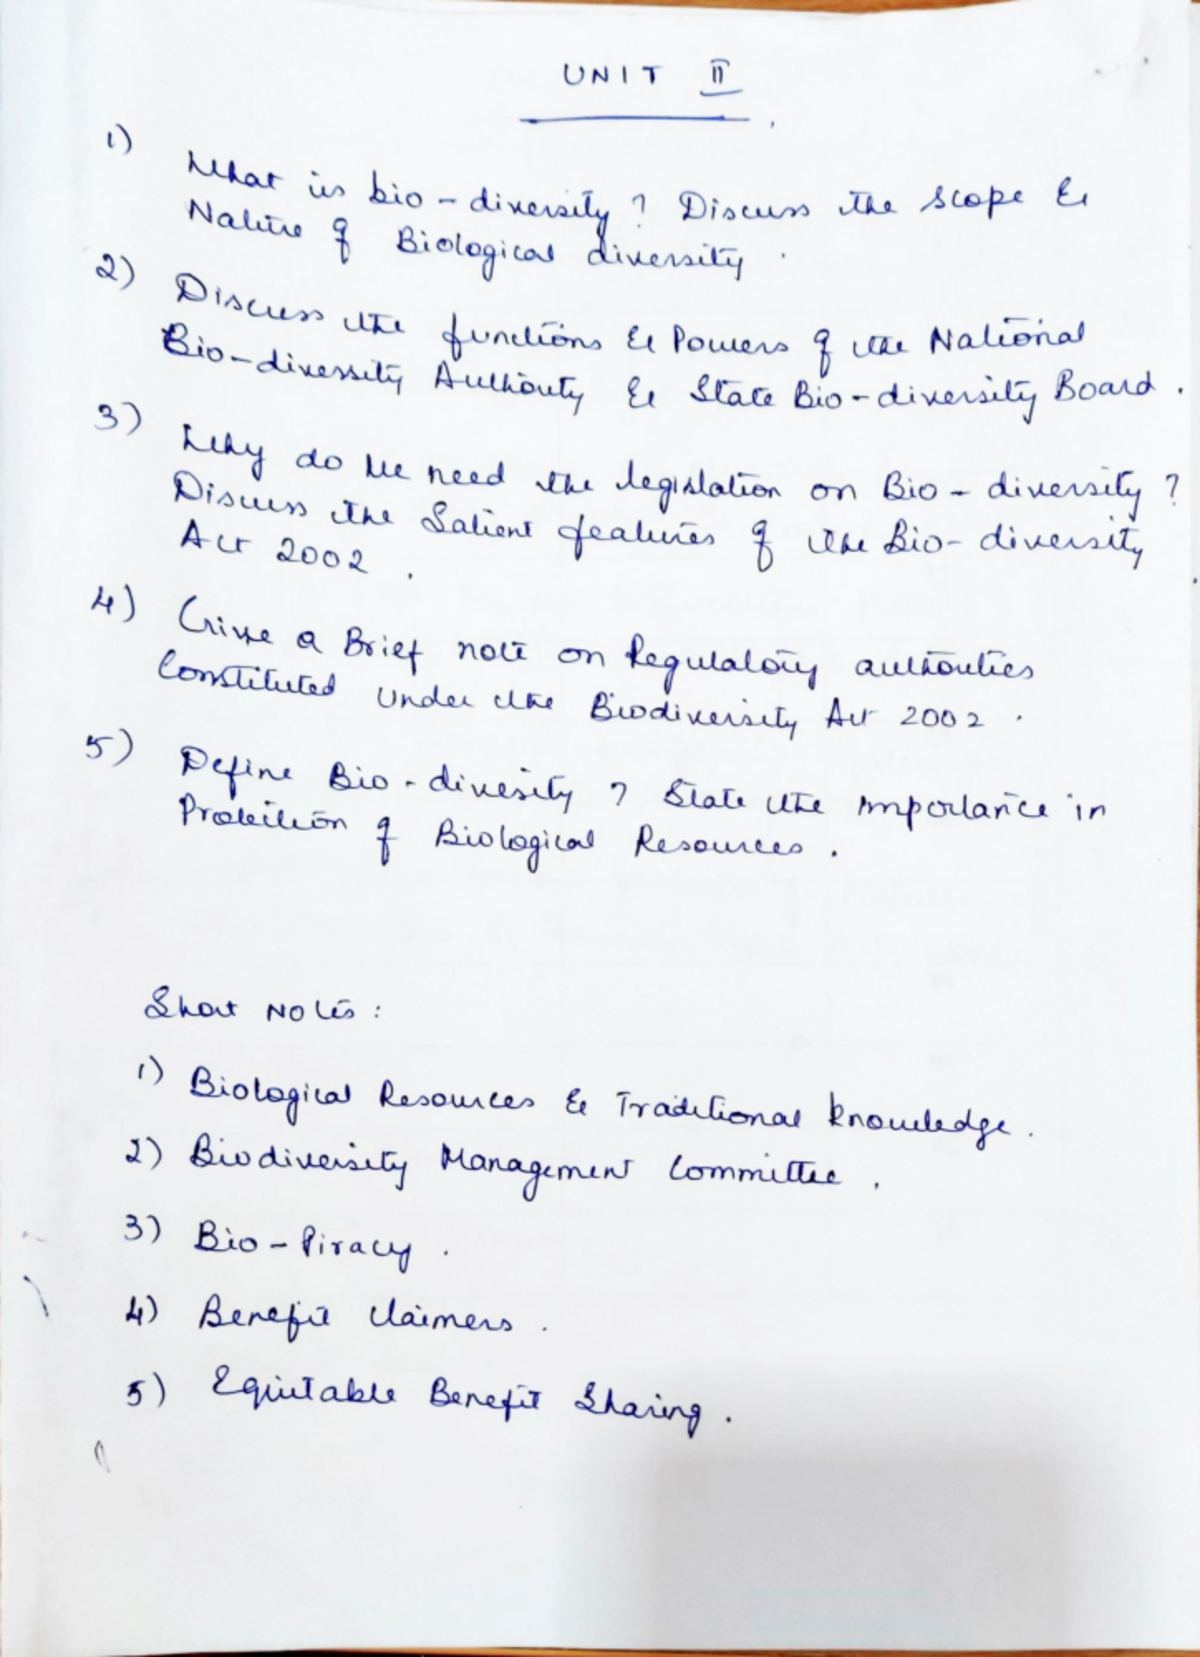 UNIT II
1) What is bio-diversity? Discuss the scope &
Nature of Biological diversity.
2) Discuss the functions & Powers of the National
Bio-diversity Authority & State Bio-diversity Board.
3) Why do we need the legislation on Bio-diversity?
Discuss the Salient features of the Bio-diversity
Act 2002.
4) Give a Brief note on Regulatory authorities
Constituted under the Biodiversity Act 2002.
5) Define Bio-divesity? State the importance in
Protection of Biological Resources.
Short Notes:
1) Biological Resources & Traditional knowledge.
2) Biodiversity Management Committee.
3) Bio-Piracy.
4) Benefit Claimers.
5) Equitable Benefit Sharing.